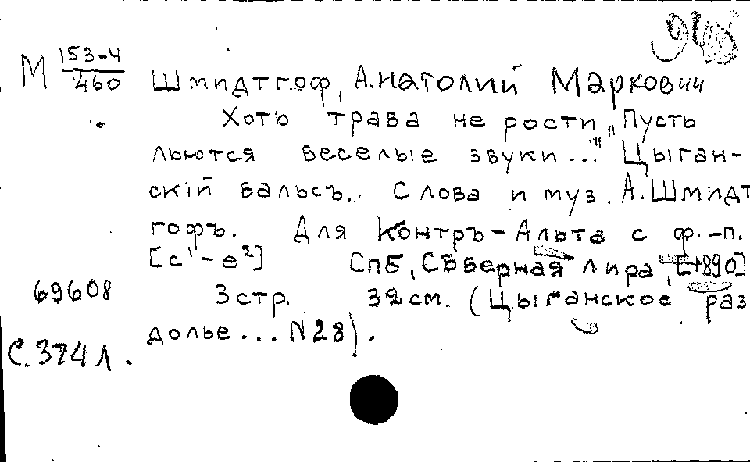 М 153-4/460 Шмидтгоф, Анатолий Маркович
Хоть трава не рости „Пусть
льются веселые звуки..." Цыган-
скiй вальсъ. Слова и муз. А. Шмидт
гофъ. Для Контръ-Альта с ф.-п.
[с¹-е²] Спб, Северная Лира, [1890]
69608 3 стр. 32 см. (Цыганское раз
долье... N28).
С. 374 л.